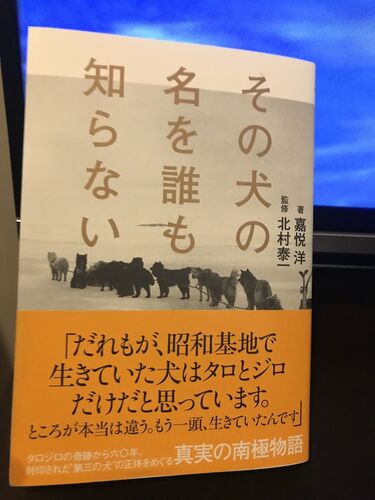 その犬の
名を誰も
知らない
著 嘉悦 洋
監修 北村泰一
「だれもが、昭和基地で
生きていた犬はタロとジロ
だけだと思っています。
ところが本当は違う。もう一頭、生きていたんです」
タロジロの奇跡から六〇年。
封印された"第三の犬"の正体をめぐる
真実の南極物語